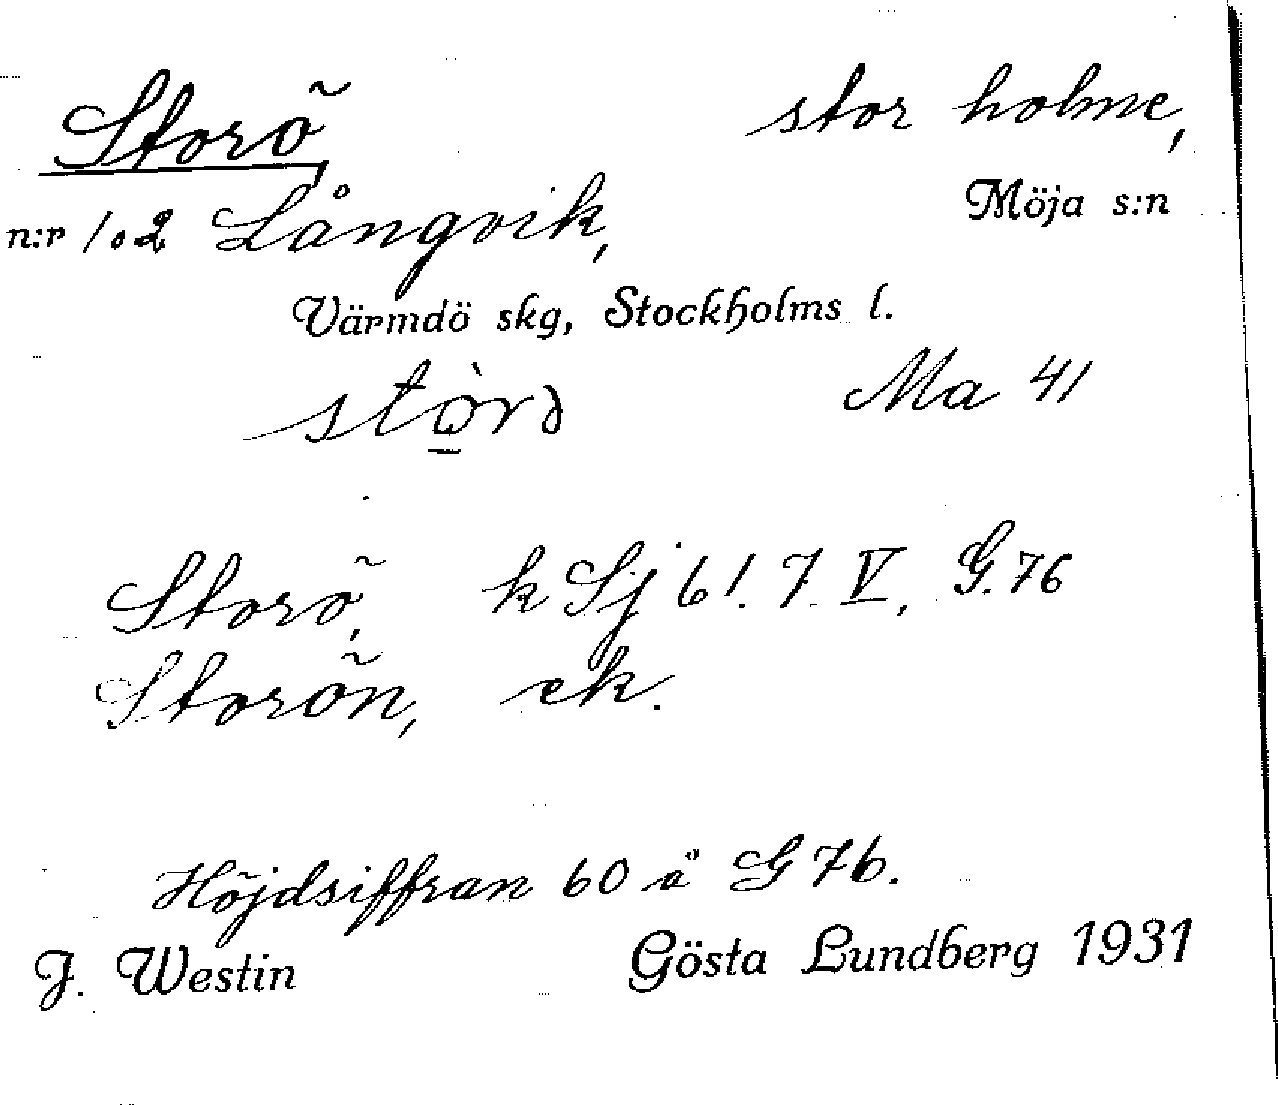 Storö, stor holme,
n:r 102 Långvik, Möja s:n
Värmdö skg, Stockholms l.
Ma 41
Storö, k Sj 61. 7. V, G. 76
Storön, ek.
Höjdsiffran 60 å G 76.
J. Westin Gösta Lundberg 1931